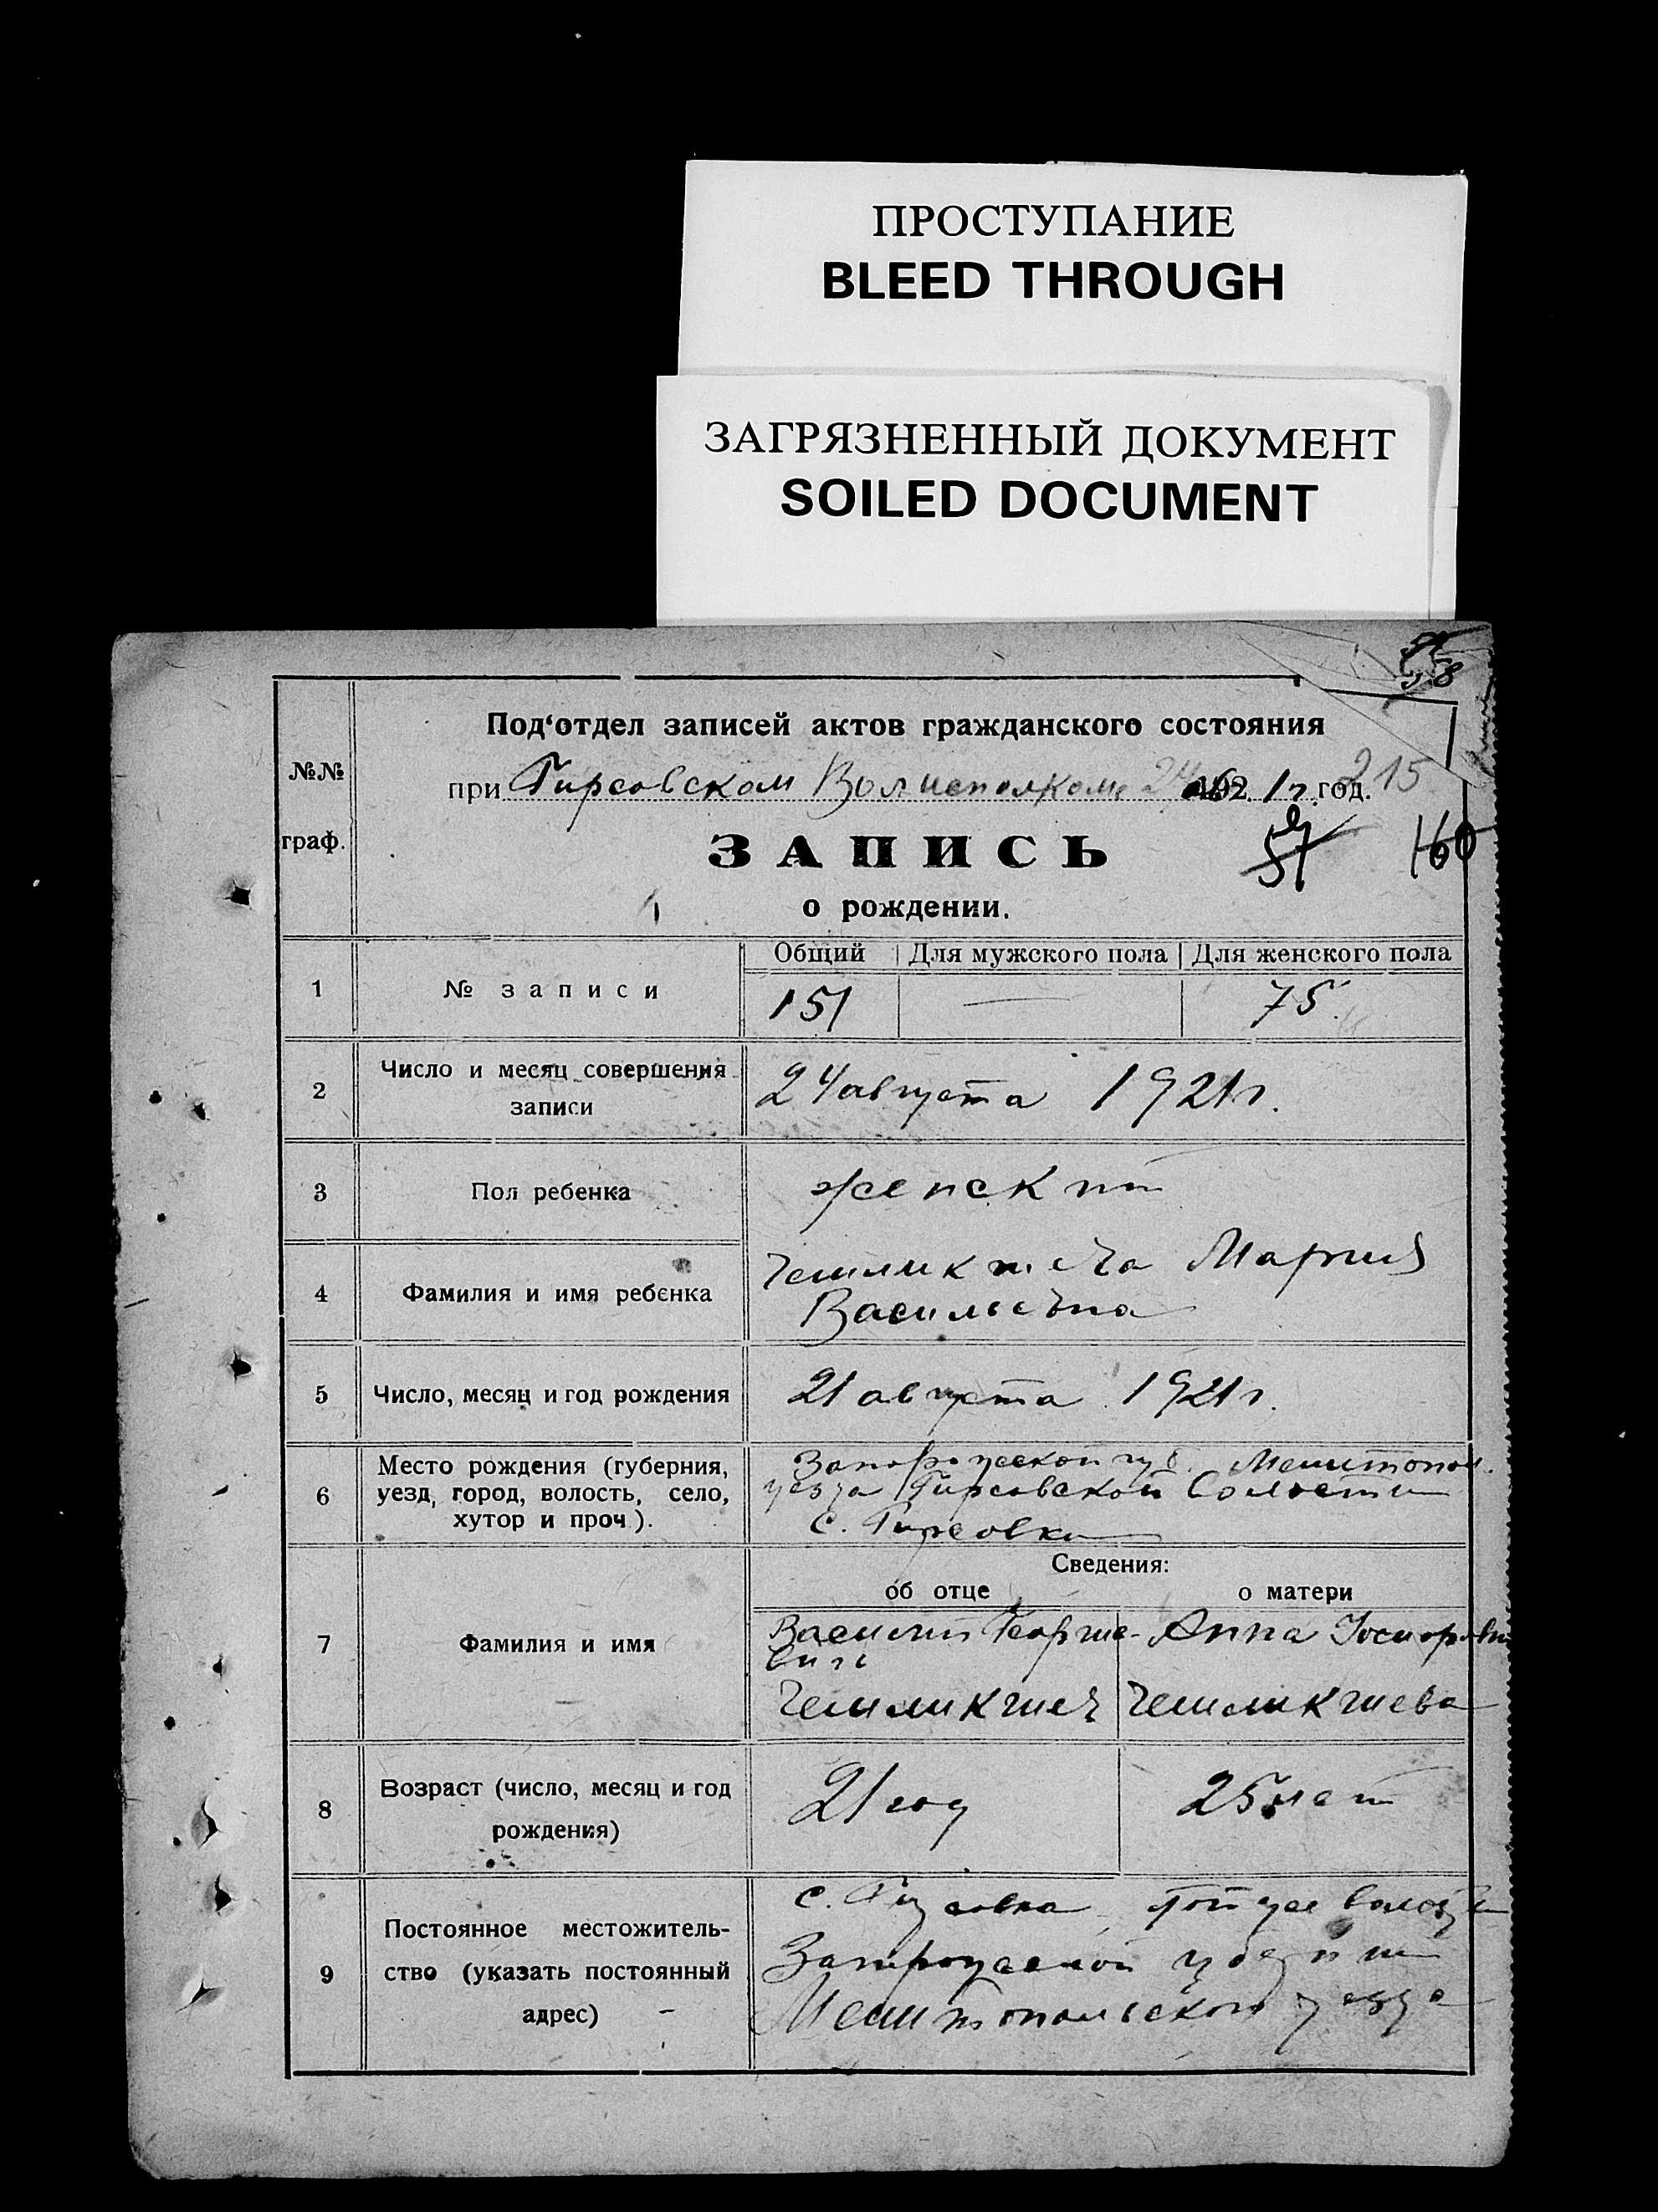 ПРОСТУПАНИЕ
BLEED THROUGH
ЗАГРЯЗНЕННЫЙ ДОКУМЕНТ
SOILED DOCUMENT
58
№№
граф.
Под‘отдел записей актов гражданского состояния
при Гирсовском Волисполкоме 192 1 г. год. 215
ЗАПИСЬ
57 160
о рождении.
Общий Для мужского пола Для женского пола
1 № записи 151 — 75.
2 Число и месяц совершения
записи
24 августа 1921 г.
3 Пол ребенка женский
4 Фамилия и имя ребенка
Чешмикжиева Мария
Васильевна
5 Число, месяц и год рождения 21 августа 1921 г.
6 Место рождения (губерния,
уезд, город, волость, село,
хутор и проч).
Запорожской губ. Мелитопол.
уезда Гирсовской волости
с. Гирсовка
Сведения:
об отце о матери
7 Фамилия и имя
Василий Георгие- Анна
вич
Чешмикжиев Чешмикжиева
8 Возраст (число, месяц и год
рождения)
21 год 25 лет
9 Постоянное местожитель-
ство (указать постоянный
адрес)
с. Гирсовка, той же волости
Запорожской губернии
Мелитопольского уезда